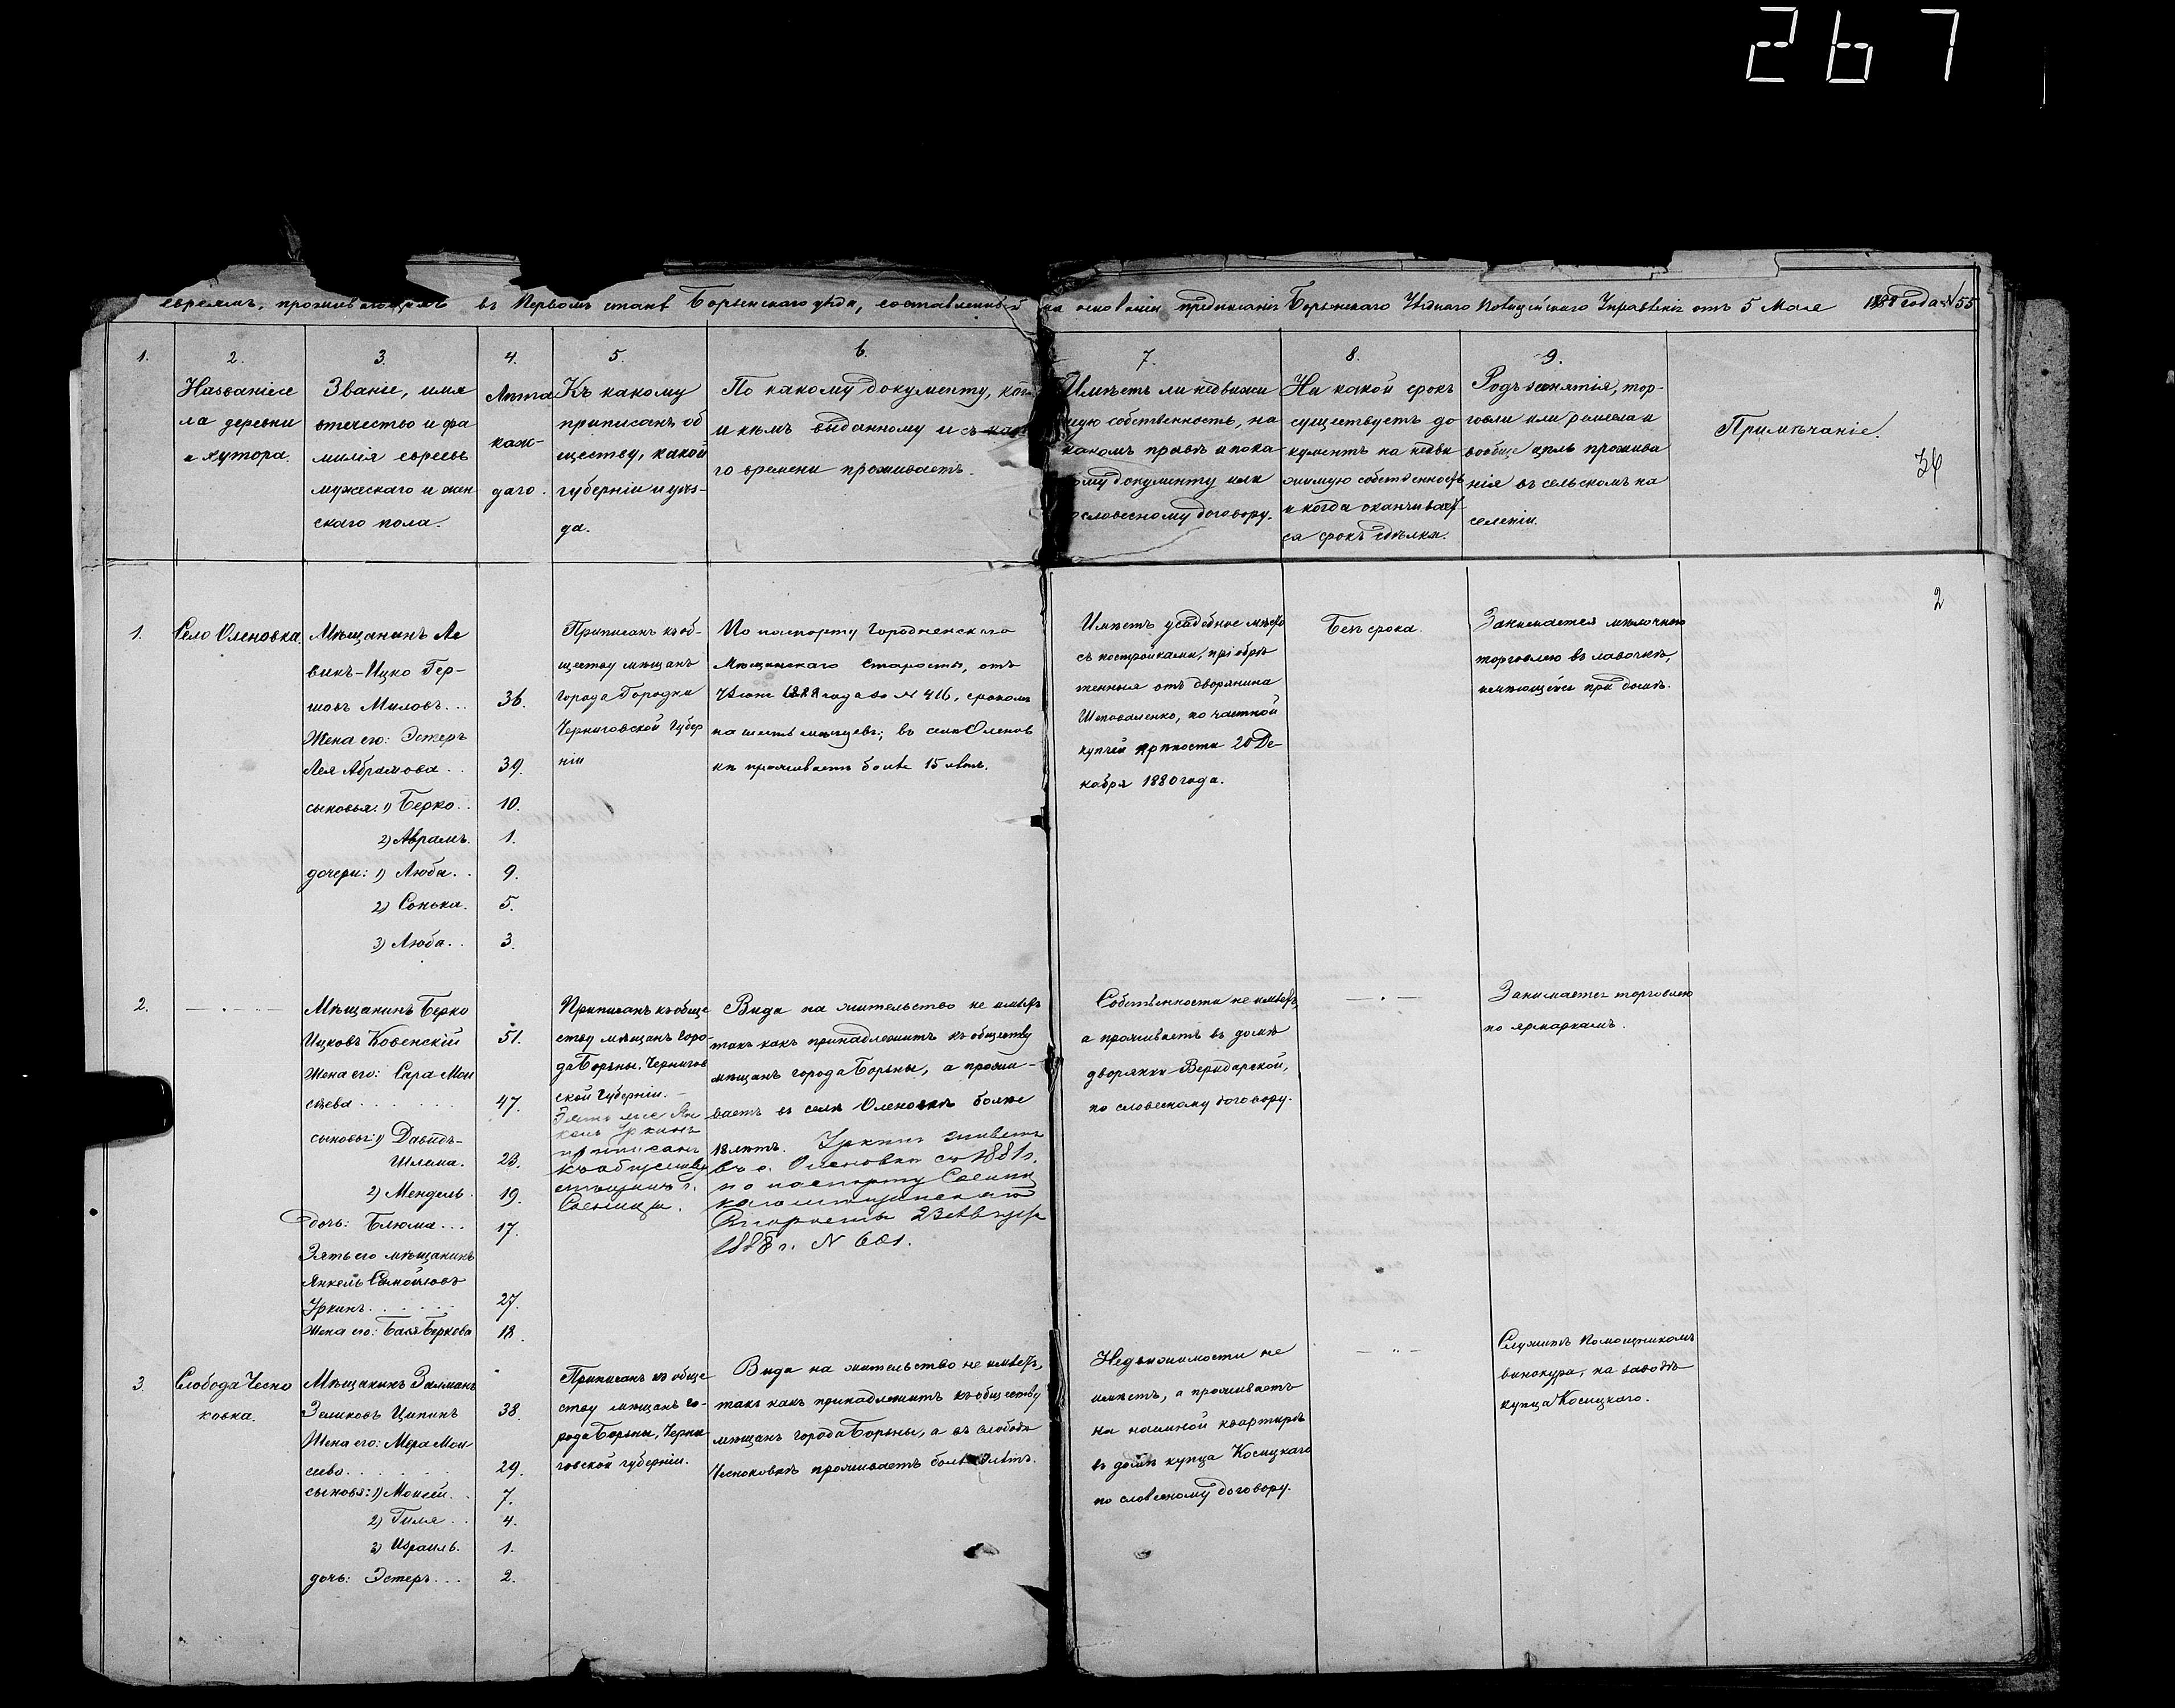 267
евреямъ, проживающимъ въ Первомъ станѣ Борзенскаго уѣзда, составленный на основаніи предписанія Борзенскаго Уѣзднаго Полицейскаго Управленія отъ 5 Мая 1888 года № 55
1.
2.
Названіе се
ла деревни
и хутора.
3.
Званіе, имя
отчество и фа
милія евреевъ
мужескаго и жен
скаго пола.
4.
Лѣта
каж-
даго.
5.
Къ какому
приписанъ об
ществу, какой
губерніи и уѣз-
да.
6.
По какому документу, когда
и кѣмъ выданному и съ како
го времени проживаетъ.
7.
Имѣетъ ли недвижи
мую собственность, на
какомъ правѣ и по ка
кому документу или
словесному договору.
8.
На какой срокъ
существуетъ до
кументъ на недви
жимую собственность
и когда оканчивает
ся срокъ сдѣлки.
9.
Родъ занятія, тор-
говли или ремесла и
вообще цѣль прожива
нія въ сельскомъ на
селеніи.
Примѣчаніе.
2
1.
Село Оленовка.
Мѣщанинъ Ле
винъ-Ицко Гер-
шовъ Миловъ...
36.
Жена его: Эстеръ
Лея Абрамова..
39.
сыновья: 1) Берко..
10.
2) Аврамъ.
1.
дочери: 1) Люба..
9.
2) Сонька.
5.
3) Люба..
3.
Приписанъ къ об-
ществу мѣщанъ
города Городни
Черниговской Губер
ніи
По паспорту Городненскаго
Мѣщанскаго Старосты, отъ
7 Іюня 1888 года за № 416, срокомъ
на шесть мѣсяцевъ; въ селѣ Оленов
кѣ проживаетъ болѣе 15 лѣтъ.
Имѣетъ усадебное мѣсто
съ постройками, пріобрѣ
тенныя отъ дворянина
Шаповаленко, по частной
купчей крѣпости 20 Де-
кабря 1880 года.
Безъ срока.
Занимается мелочною
торговлею въ лавочкѣ,
имѣющейся при домѣ.
2.
Мѣщанинъ Берко
Ицковъ Ковенскій
51.
Жена его: Сара Мои
сѣева........
47.
сыновья: 1) Давидъ-
Шлема.
23.
2) Мендель.
19.
дочь: Блюма...
17.
Зять его мѣщанинъ
Янкель Самойловъ
Уркинъ......
27.
Жена его: Бася Беркова
18.
Приписанъ къ обще
ству мѣщанъ горо-
да Борзны, Чернигов
ской Губерніи. -
Зять же Ян
кель Уркинъ
приписанъ
къ обществу
мѣщанъ г.
Сосницы.
Вида на жительство не имѣетъ
такъ какъ принадлежитъ къ обществу
мѣщанъ города Борзны, а прожи-
ваетъ въ селѣ Оленовкѣ болѣе
18 лѣтъ. Уркинъ живетъ
въ с. Оленовкѣ съ 1881 г.
по паспорту Сосниц
каго мѣщанскаго
Старосты 23 Августа
1888 г. № 601.
Собственности не имѣетъ,
а проживаетъ въ домѣ
дворянки Вериdарской,
по словесному договору.
Занимается торговлею
по ярмаркамъ.
3.
Слобода Чесно
ковка.
Мѣщанинъ Залманъ
Зеликовъ Ципинъ
38.
Жена его: Мера Мои
сеева.......
29.
сыновья: 1) Моисей..
7.
2) Гиля...
4.
3) Израиль.
1.
дочь: Эстеръ...
2.
Приписанъ къ обще
ству мѣщанъ го-
рода Борзны, Черни
говской губерніи.
Вида на жительство не имѣетъ,
такъ какъ принадлежитъ къ обществу
мѣщанъ города Борзны, а въ слободѣ
Чесноковкѣ проживаетъ болѣе лѣтъ.
Недвижимости не
имѣетъ, а проживаетъ
на наемной квартирѣ
въ домѣ купца Косицкаго
по словесному договору.
Служитъ помощникомъ
винокура, на заводѣ
купца Косицкаго.